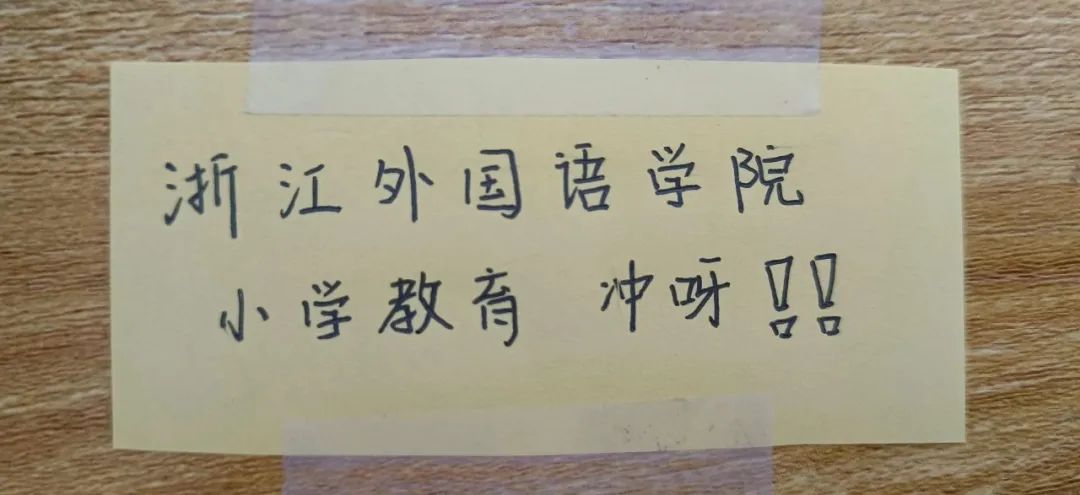 浙江外国语学院
小学教育 冲呀!!